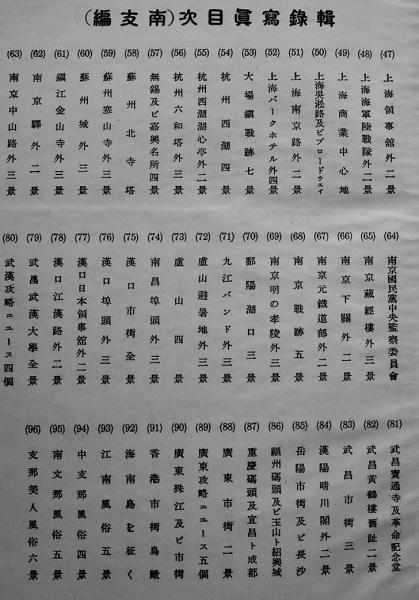 輯錄寫眞目次(南支編)
(47) 上海領事館外二景
(48) 上海海軍陸戰隊外二景
(49) 上海商業中心地
(50) 上海吳淞路及ビブロードウェイ
(51) 上海南京路外二景
(52) 上海パークホテル外四景
(53) 大場鎭戰跡七景
(54) 杭州西湖四景
(55) 杭州西湖湖心亭外二景
(56) 杭州六和塔外三景
(57) 無錫及ビ嘉興名所四景
(58) 蘇州北寺塔
(59) 蘇州寒山寺外三景
(60) 蘇州城外三景
(61) 鎭江金山寺外三景
(62) 南京驛外二景
(63) 南京中山路外三景
(64) 南京國民黨中央監察委員會
(65) 南京藏經樓外三景
(66) 南京下關外二景
(67) 南京元鐵道部外二景
(68) 南京戰跡五景
(69) 南京明の孝陵外三景
(70) 鄱陽湖口三景
(71) 九江バンド外三景
(72) 廬山避暑地外三景
(73) 廬山四景
(74) 南昌埠頭外三景
(75) 漢口市街全景
(76) 漢口埠頭外三景
(77) 漢口日本領事館外二景
(78) 漢口江漢路外二景
(79) 武昌武漢大學全景
(80) 武漢攻略ニュース四個
(81) 武昌寶通寺及革命記念堂
(82) 武昌黃鶴樓舊趾二景
(83) 武昌市街三景
(84) 漢陽晴川閣外二景
(85) 岳陽市街及ビ長沙
(86) 福州碼頭及ビ玉山ト紹興城
(87) 重慶碼頭及宜昌ト成都
(88) 廣東市街二景
(89) 廣東攻略ニュース五個
(90) 廣東殊江及ビ市街
(91) 香港市街鳥瞰
(92) 海南島を征く
(93) 江南風俗五景
(94) 中支那風俗四景
(95) 南支那風俗五景
(96) 支那美人風俗六景